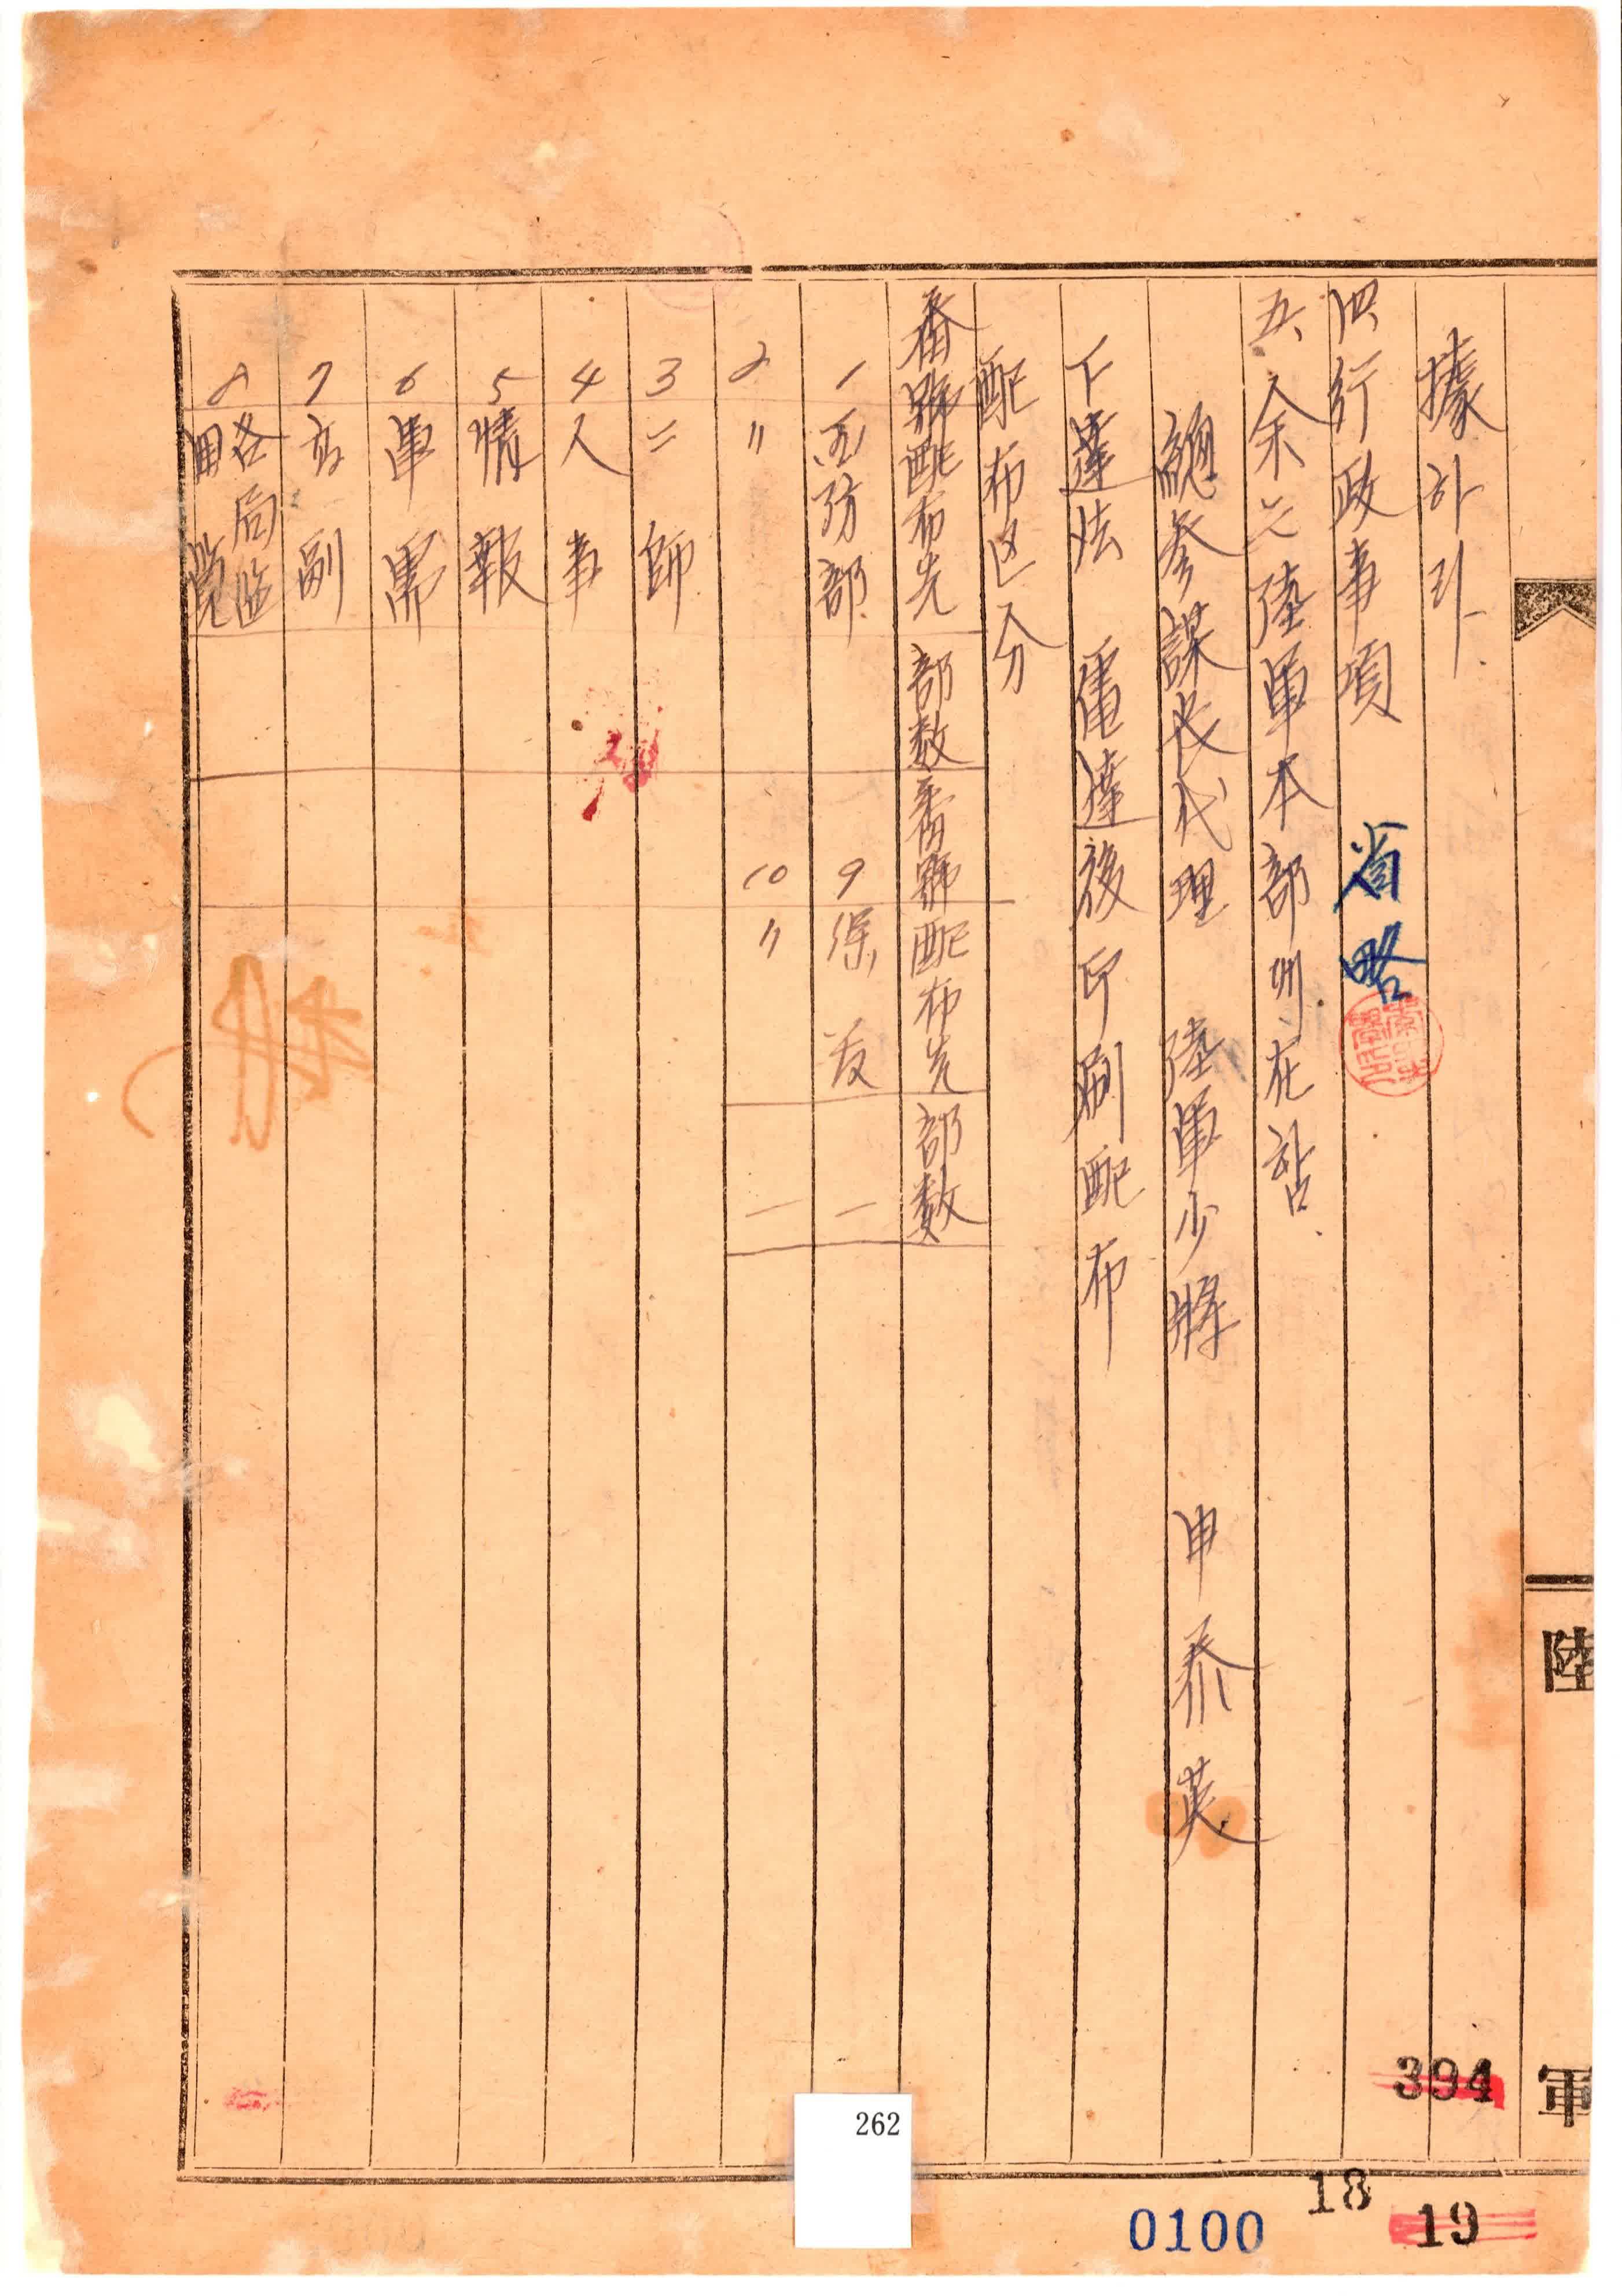 據하라.
四、行政事項 省略
五、余는 陸軍本部에 在함.
總參謀長代理 陸軍少將 申泰英
下達法 電達後印刷配布
配布区分
番號 配布先 部数 番號 配布先 部数
1 国防部 9 保 一
2 〃 10 〃 一
3 二師
4 人事
5 情報
6 軍需
7 高副
8 各局監
陸軍
394
262
18
0100
19